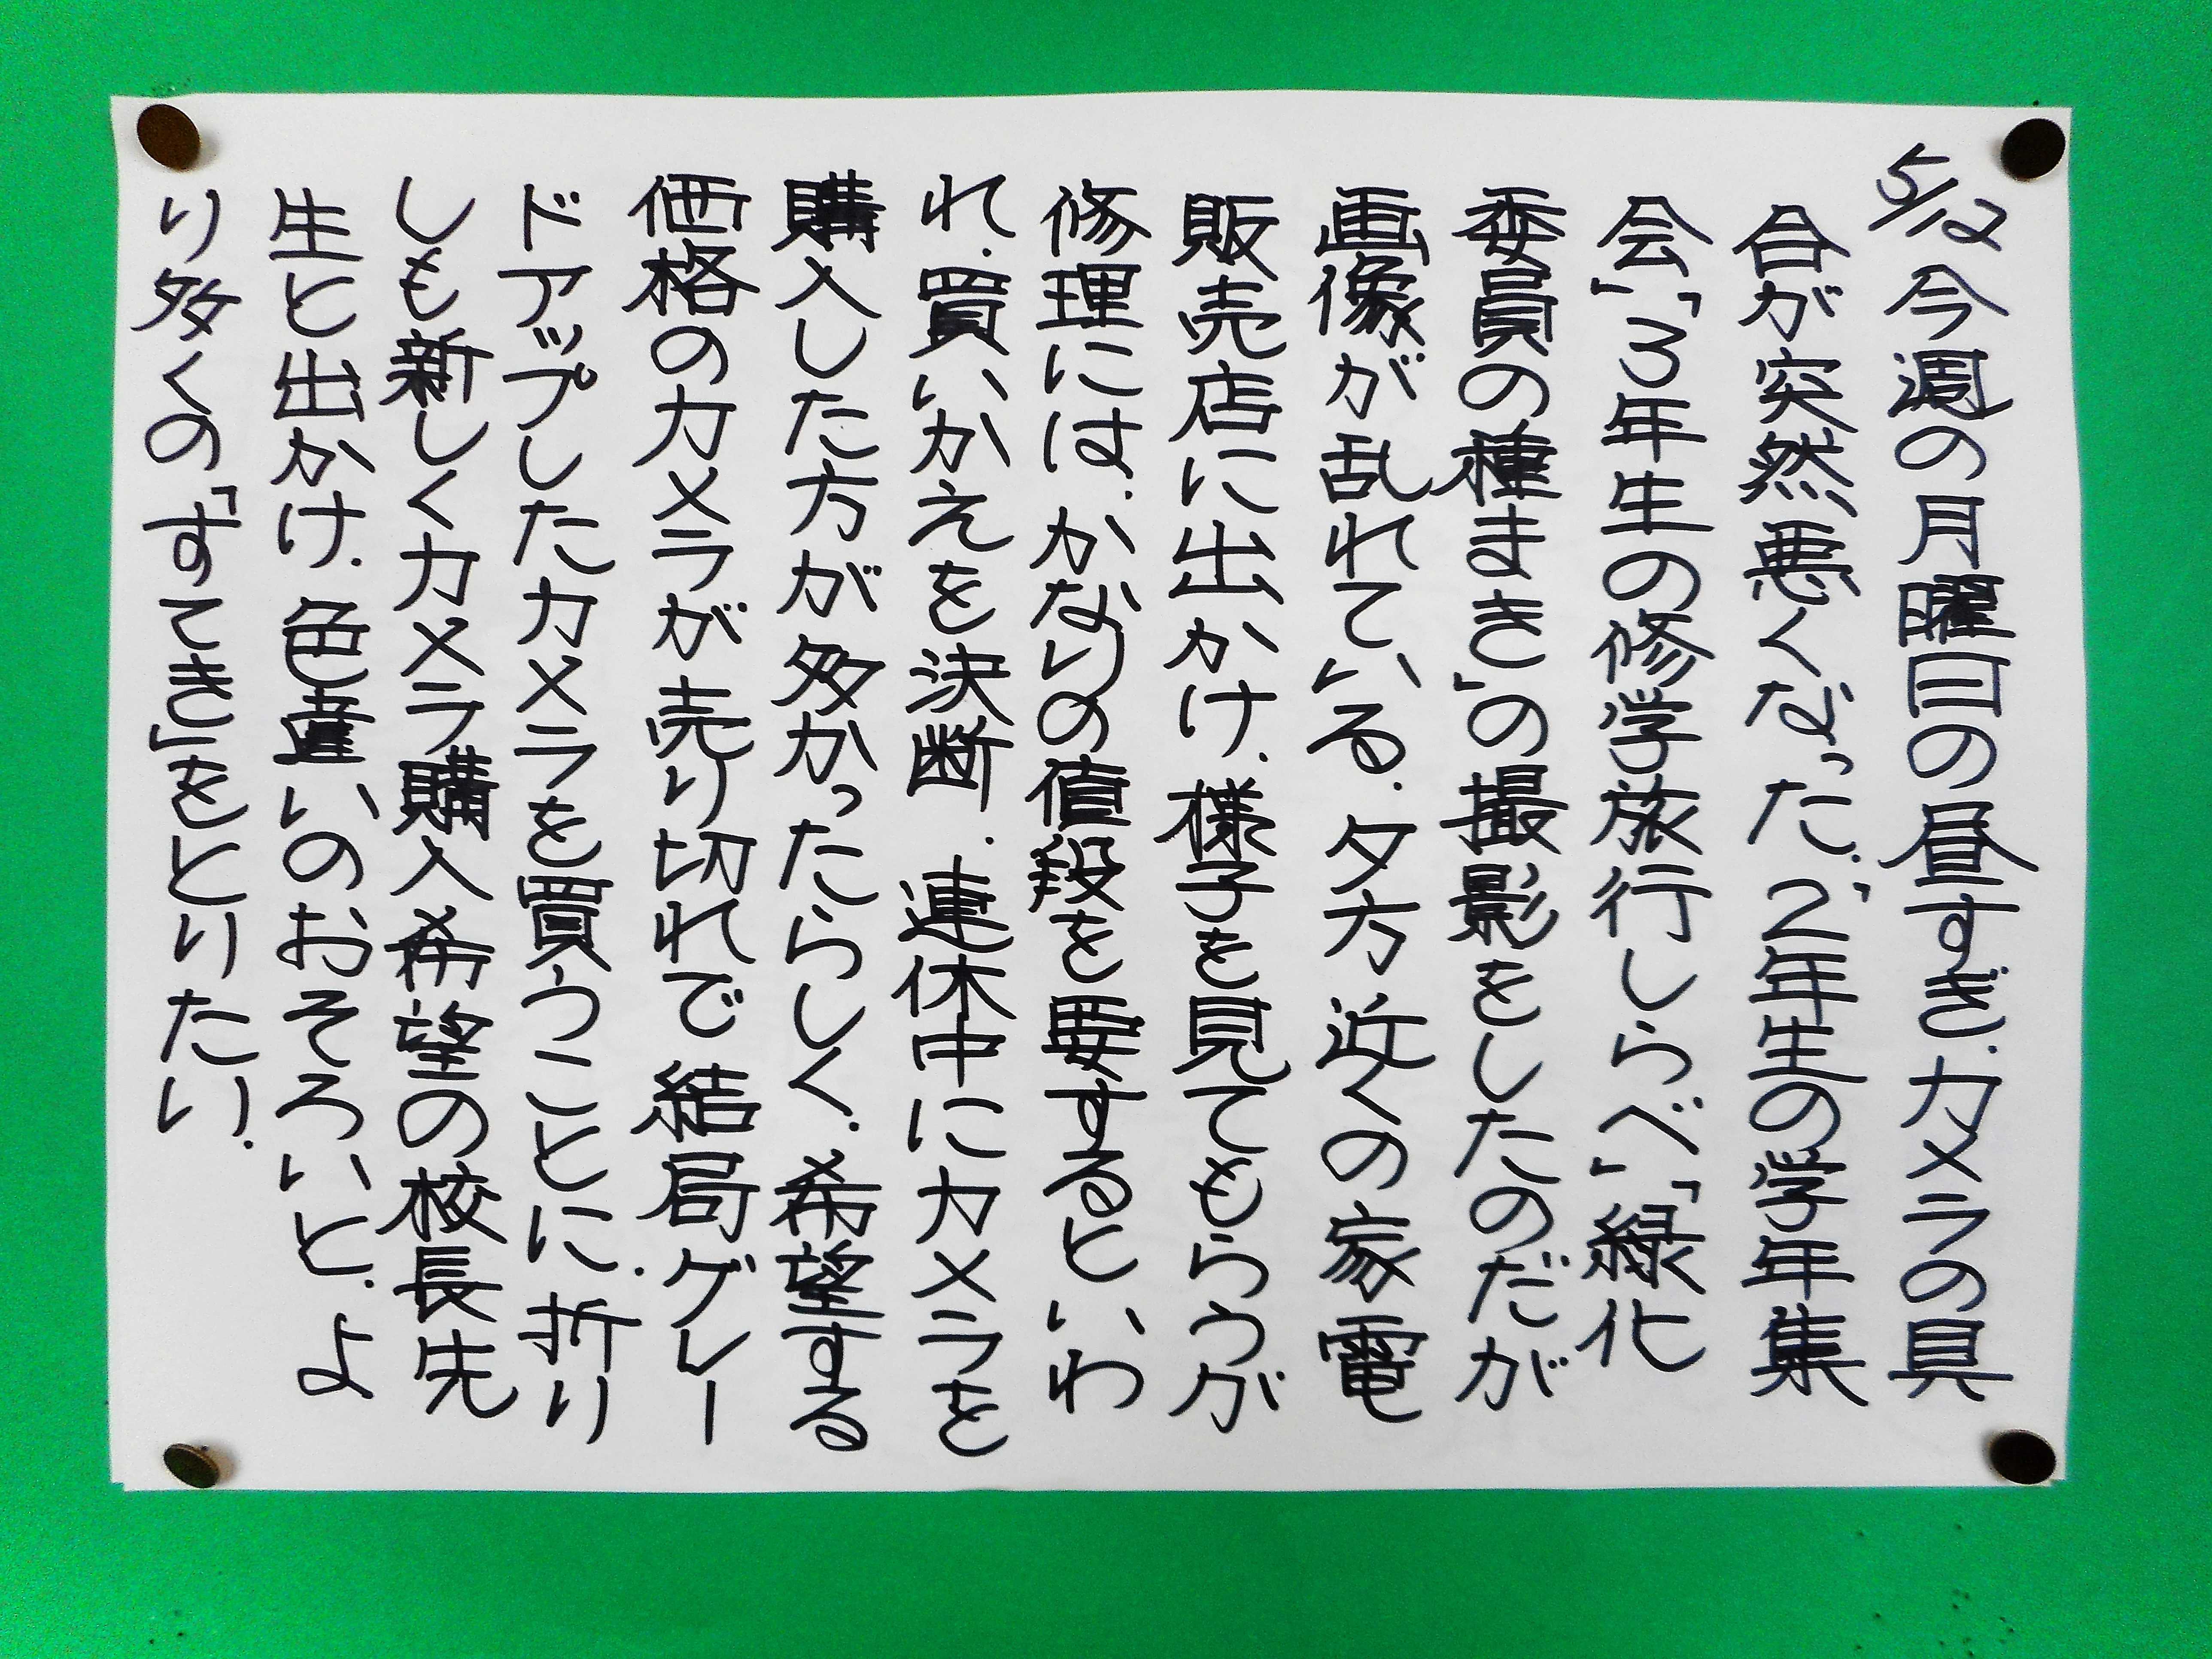 5/12 今週の月曜日の昼すぎ.カメラの具
合が突然悪くなった.「2年生の学年集
会」「3年生の修学旅行しらべ」「緑化
委員の種まき」の撮影をしたのだが
画像が乱れている.夕方近くの家電
販売店に出かけ.様子を見てもらうが
修理には.かなりの値段を要するといわ
れ.買いかえを決断.連休中にカメラを
購入した方が多かったらしく.希望する
価格のカメラが売り切れで結局グレー
ドアップしたカメラを買うことに.折り
しも新しくカメラ購入希望の校長先
生と出かけ.色違いのおそろいと.よ
り多くの「すてき」をとりたい.